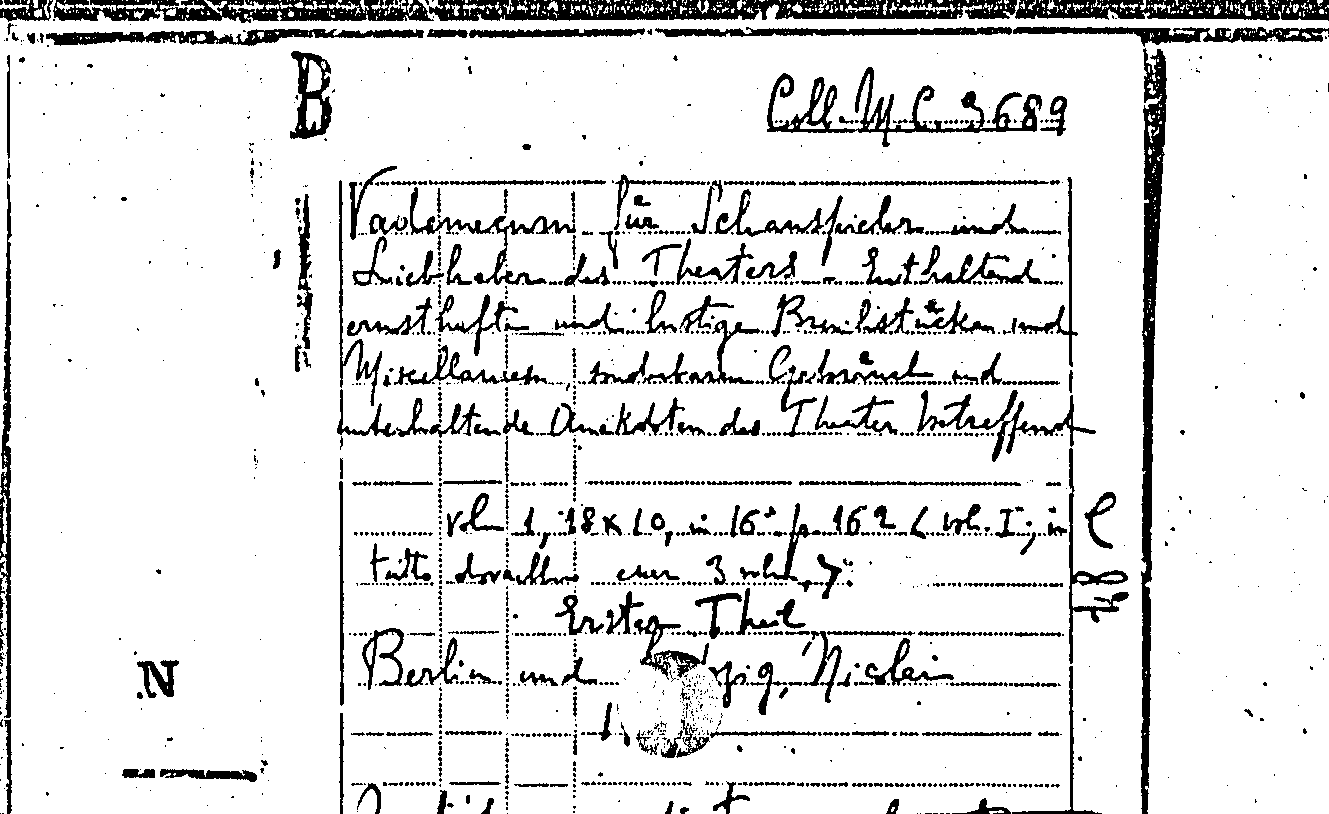 B
Coll. M. C. 3689
Vademecum für Schauspieler und
Liebhaber des Theaters - Enthaltend
ernsthafte und lustige Bruchstücken und
Miscellanien, sonderbaren Gebräuch und
unterhaltende Anekdoten das Theater betreffend
vol. 1, 18 x 10, in 16° p. 162 (vol. I; in
tutto dovrebbero esser 3 vol.
Erster Theil
Berlin und zig, Nicolai
1
N